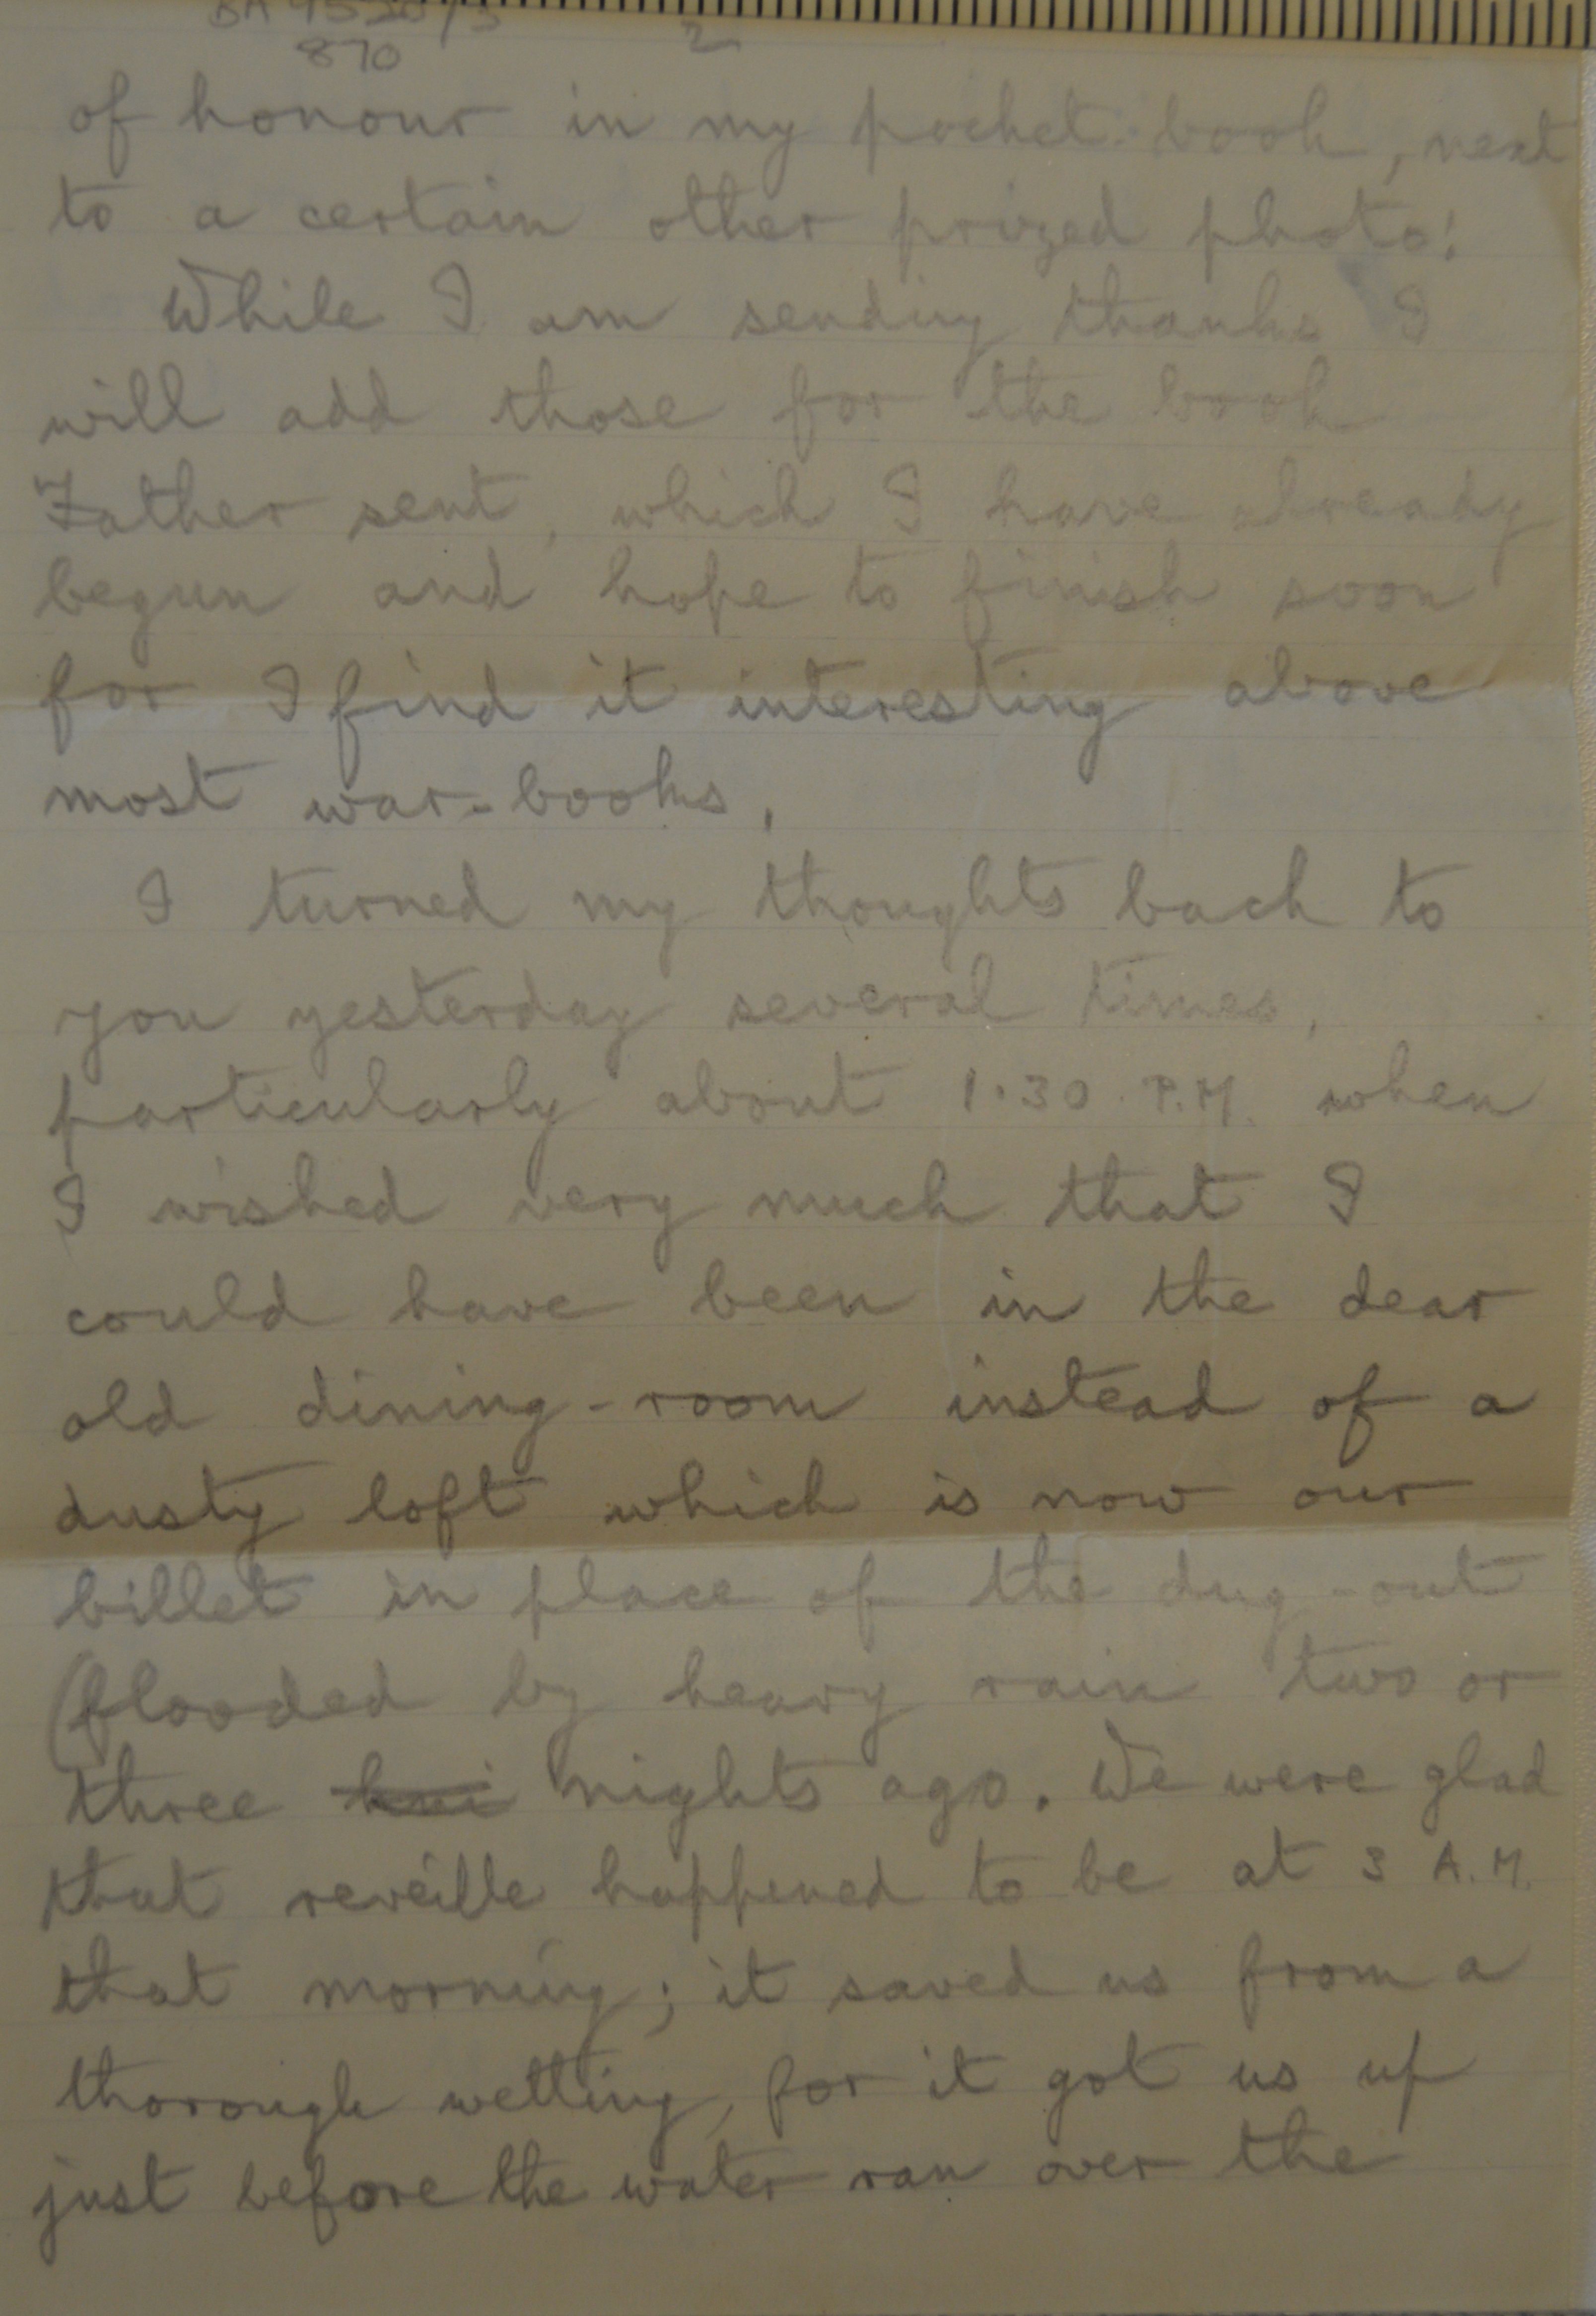 870
2
of honour in my pocket-book, next
to a certain other prized photo!
While I am sending thanks I
will add those for the book
Father sent, which I have already
begun and hope to finish soon
for I find it interesting above
most war-books.
I turned my thoughts back to
you yesterday several times,
particularly about 1.30 P.M. when
I wished very much that I
could have been in the dear
old dining-room instead of a
dusty loft which is now our
billet in place of the dug-out
(flooded by heavy rain two or
three nights ago. We were glad
that reveille happened to be at 3 A.M.
that morning; it saved us from a
thorough wetting, for it got us up
just before the water ran over the